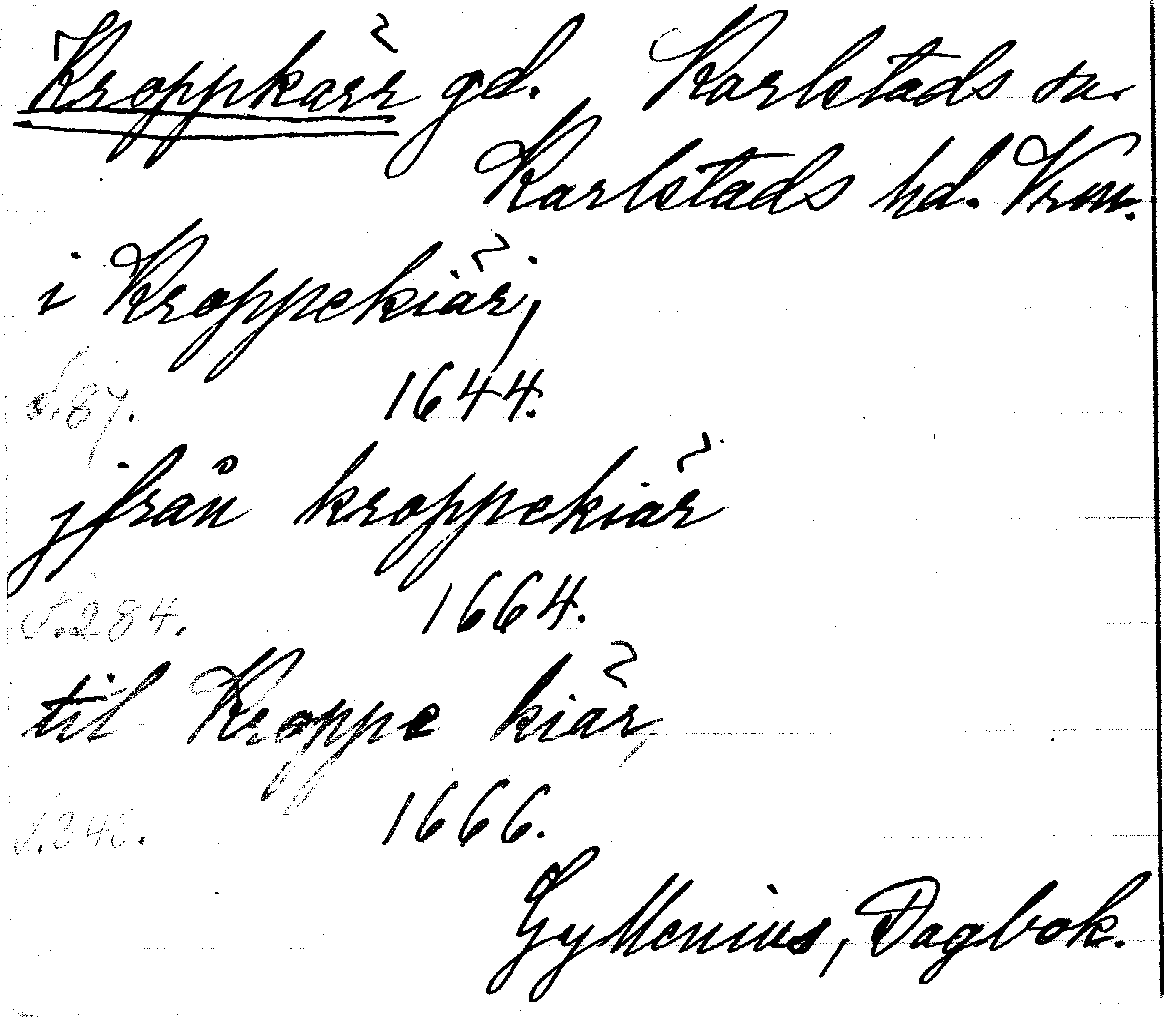 Kroppkärr gd. Karlstads sn.
Karlstads hd. Vrm.
i Kroppekiär,
S.87. 1644.
jfrån kroppekiär
S.284. 1664.
til Kroppe kiär,
1666.
Gyllenius, Dagbok.